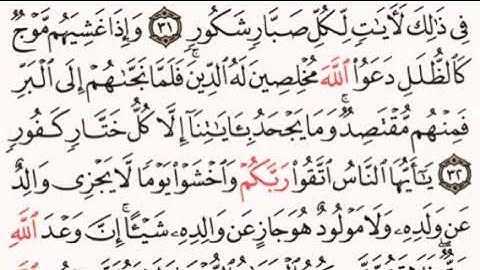 فِى ذَٰلِكَ لَأٓيَـٰتٍ لِّكُلِّ صَبَّارٍ شَكُورٍ ٣١ وَإِذَا غَشِيَهُم مَّوۡجٌ
كَٱلظُّلَلِ دَعَوُا۟ ٱللَّهَ مُخۡلِصِينَ لَهُ ٱلدِّينَ فَلَمَّا نَجَّىٰهُمۡ إِلَى ٱلۡبَرِّ
فَمِنۡهُم مُّقۡتَصِدٌ ۚ وَمَا يَجۡحَدُ بِـَٔايَـٰتِنَآ إِلَّا كُلُّ خَتَّارٍ كَفُورٍ
٣٢ يَـٰٓأَيُّهَا ٱلنَّاسُ ٱتَّقُوا۟ رَبَّكُمۡ وَٱخۡشَوۡا۟ يَوۡمًا لَّا يَجۡزِى وَالِدٌ
عَن وَلَدِهِۦ وَلَا مَوۡلُودٌ هُوَ جَازٍ عَن وَالِدِهِۦ شَيۡـًٔا ۚ إِنَّ وَعۡدَ ٱللَّهِ